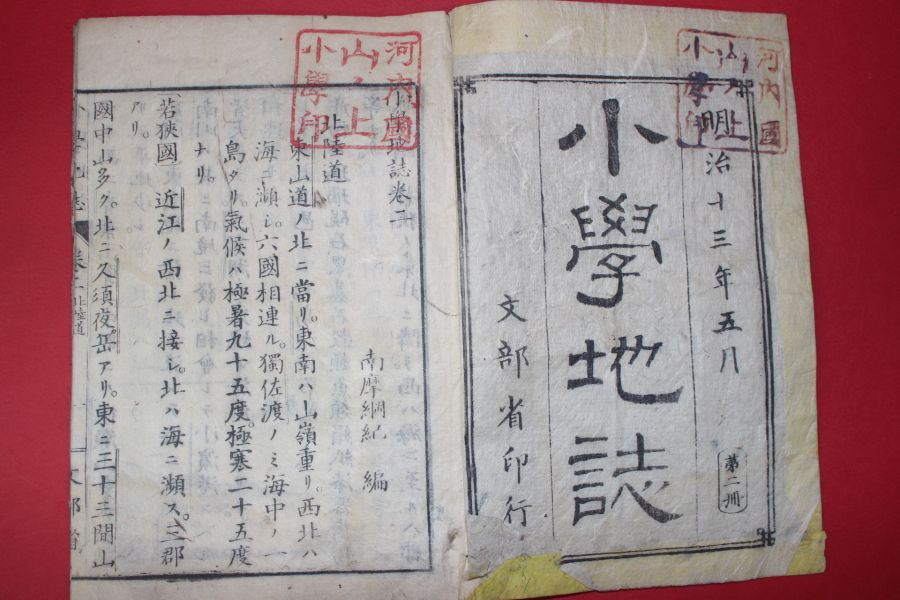 明治十三年五月
小學地誌
第二冊
文部省印行
河內國
山ノ上
小學印
河內國
山ノ上
小學印
小學地誌卷二
南摩綱紀 編
北陸道
東山道ノ北ニ當リ。東南ハ山嶺重リ。西北ハ
海ニ瀕シ。六國相連ル。獨佐渡ノミ海中ノ一
島タリ。氣候ハ極暑九十五度。極寒二十五度
ナリ。
若狹國 近江ノ西北ニ接シ。北ハ海ニ瀕ス。三郡
アリ。
國中山多ク。北ニ久須夜岳アリ。東ニ三十三間山
小學地誌 卷二 北陸道
文部省